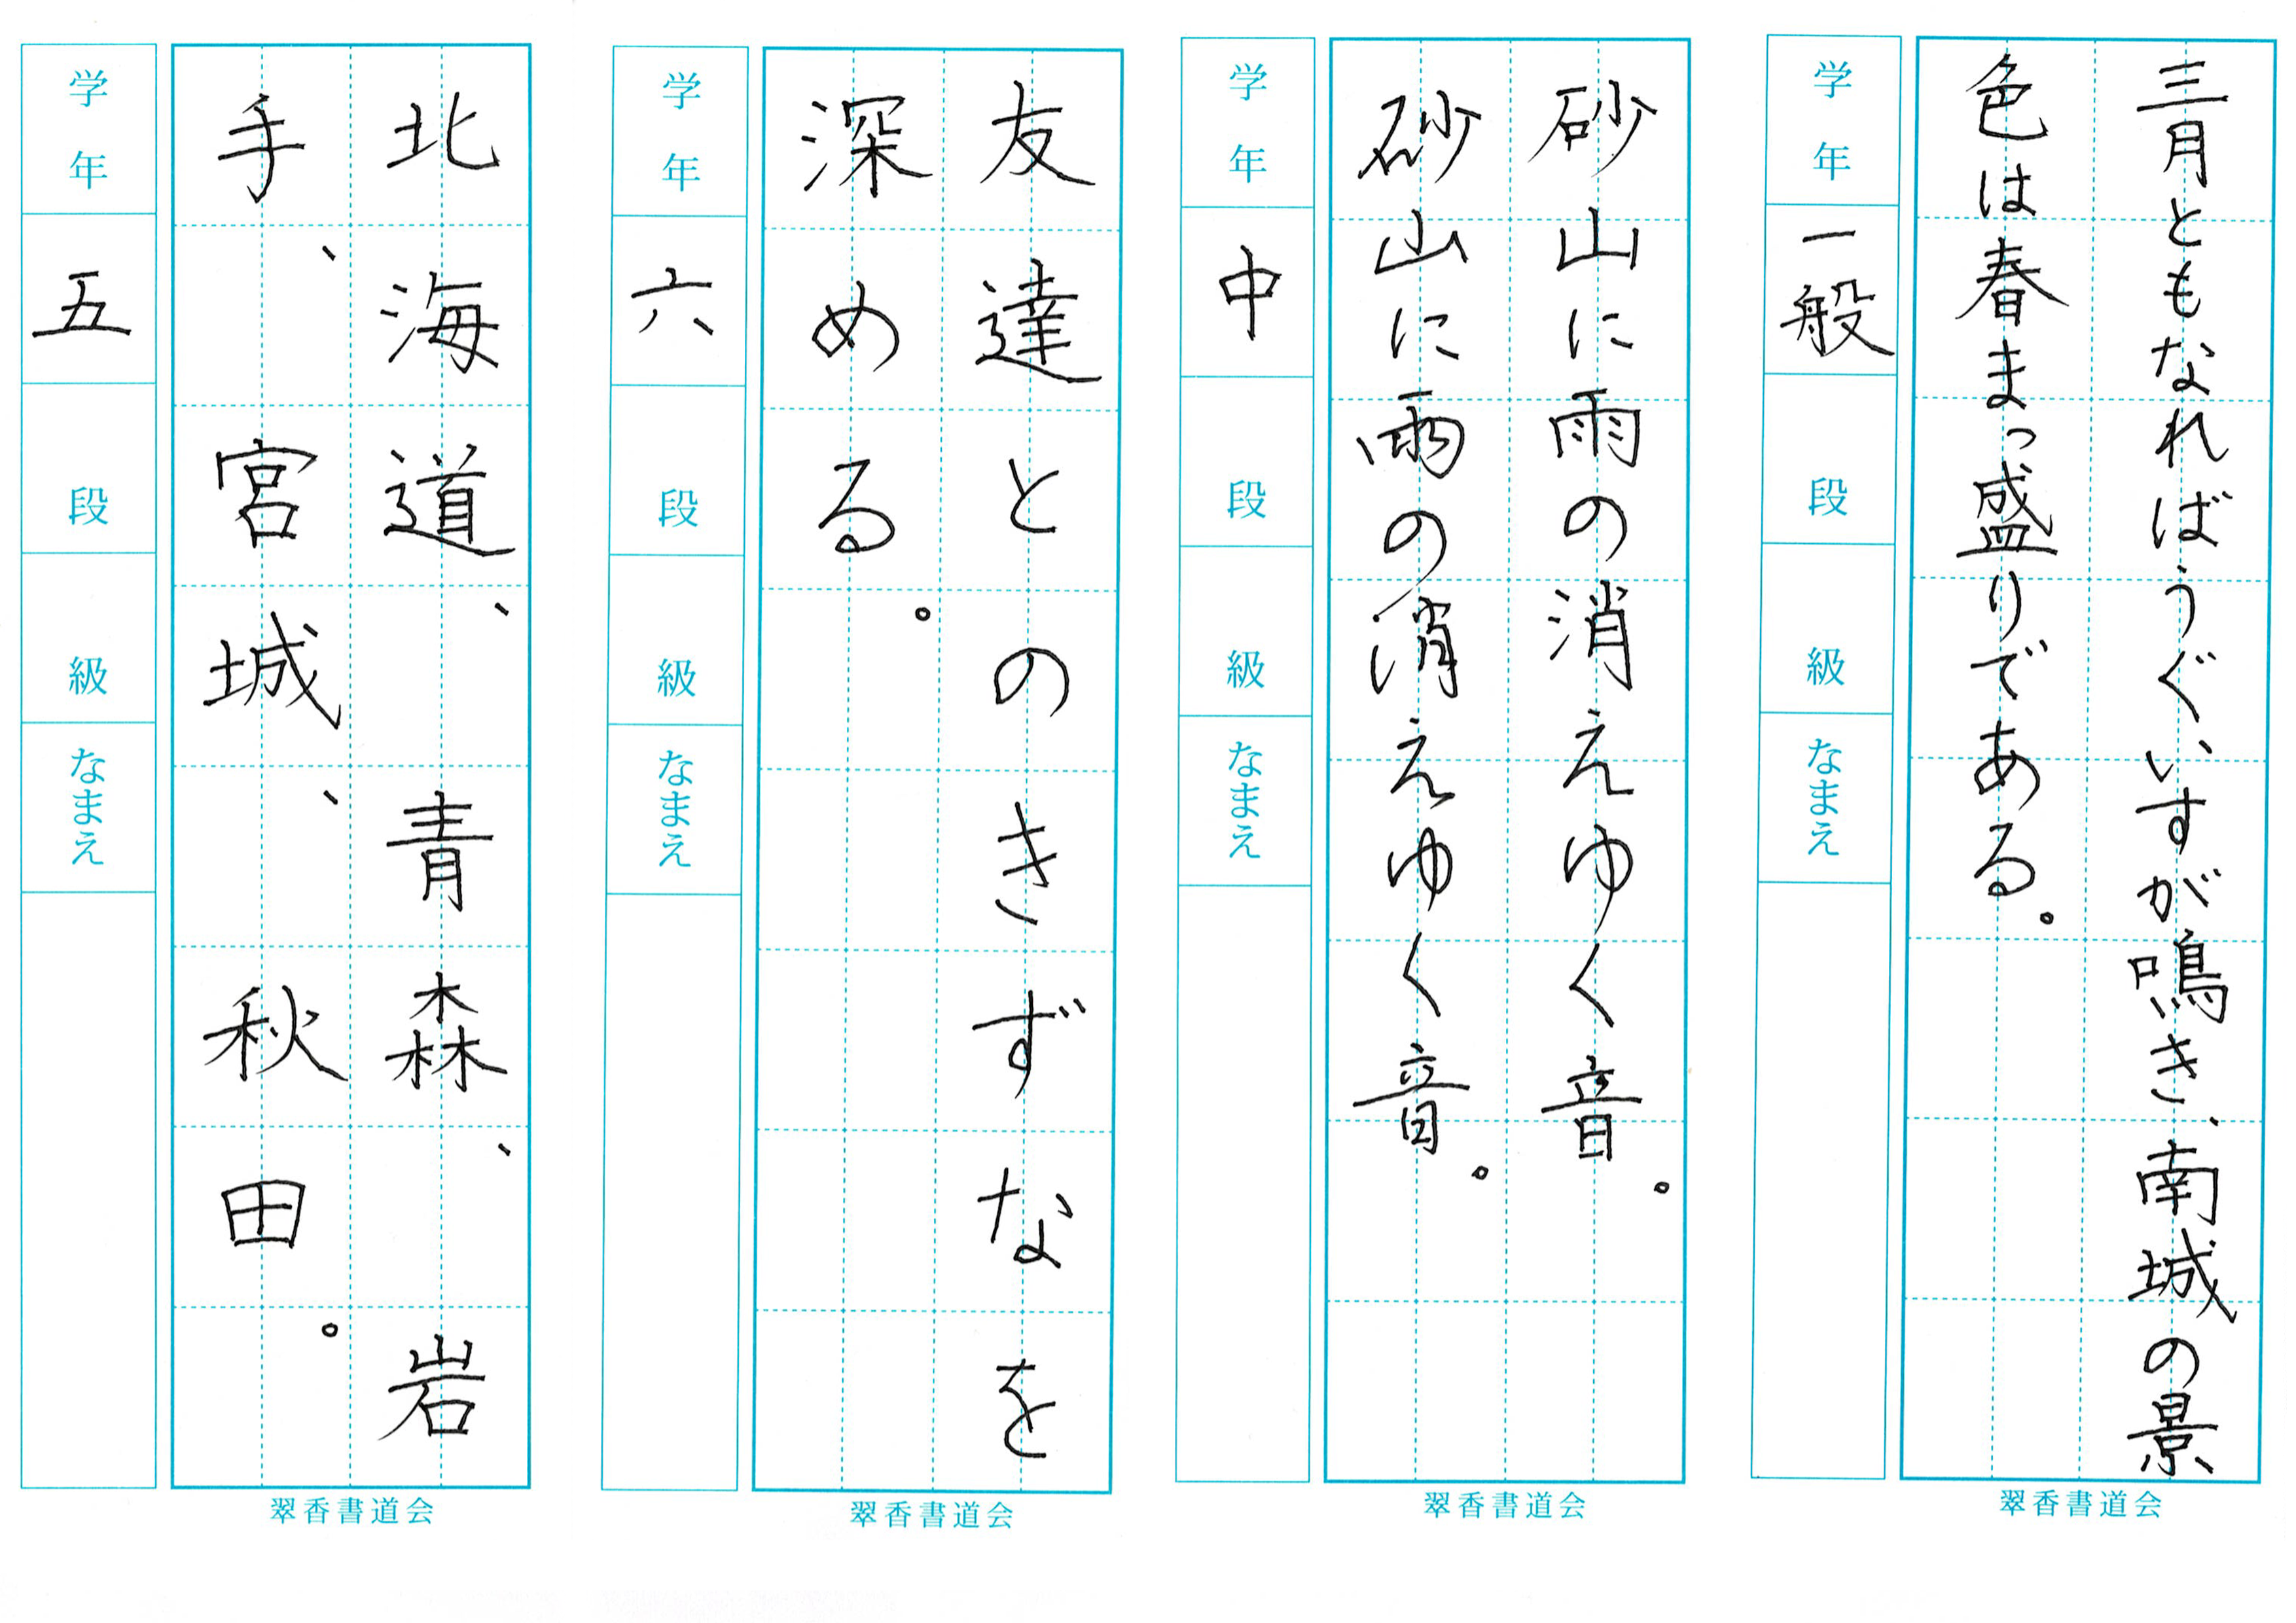 三月ともなればうぐいすが鳴き、南城の景
色は春まっ盛りである。
学年
一般
段
級
なまえ
翠香書道会
砂山に雨の消えゆく音。
砂山に雨の消えゆく音。
学年
中
段
級
なまえ
翠香書道会
友達とのきずなを
深める。
学年
六
段
級
なまえ
翠香書道会
北海道、青森、岩
手、宮城、秋田。
学年
五
段
級
なまえ
翠香書道会